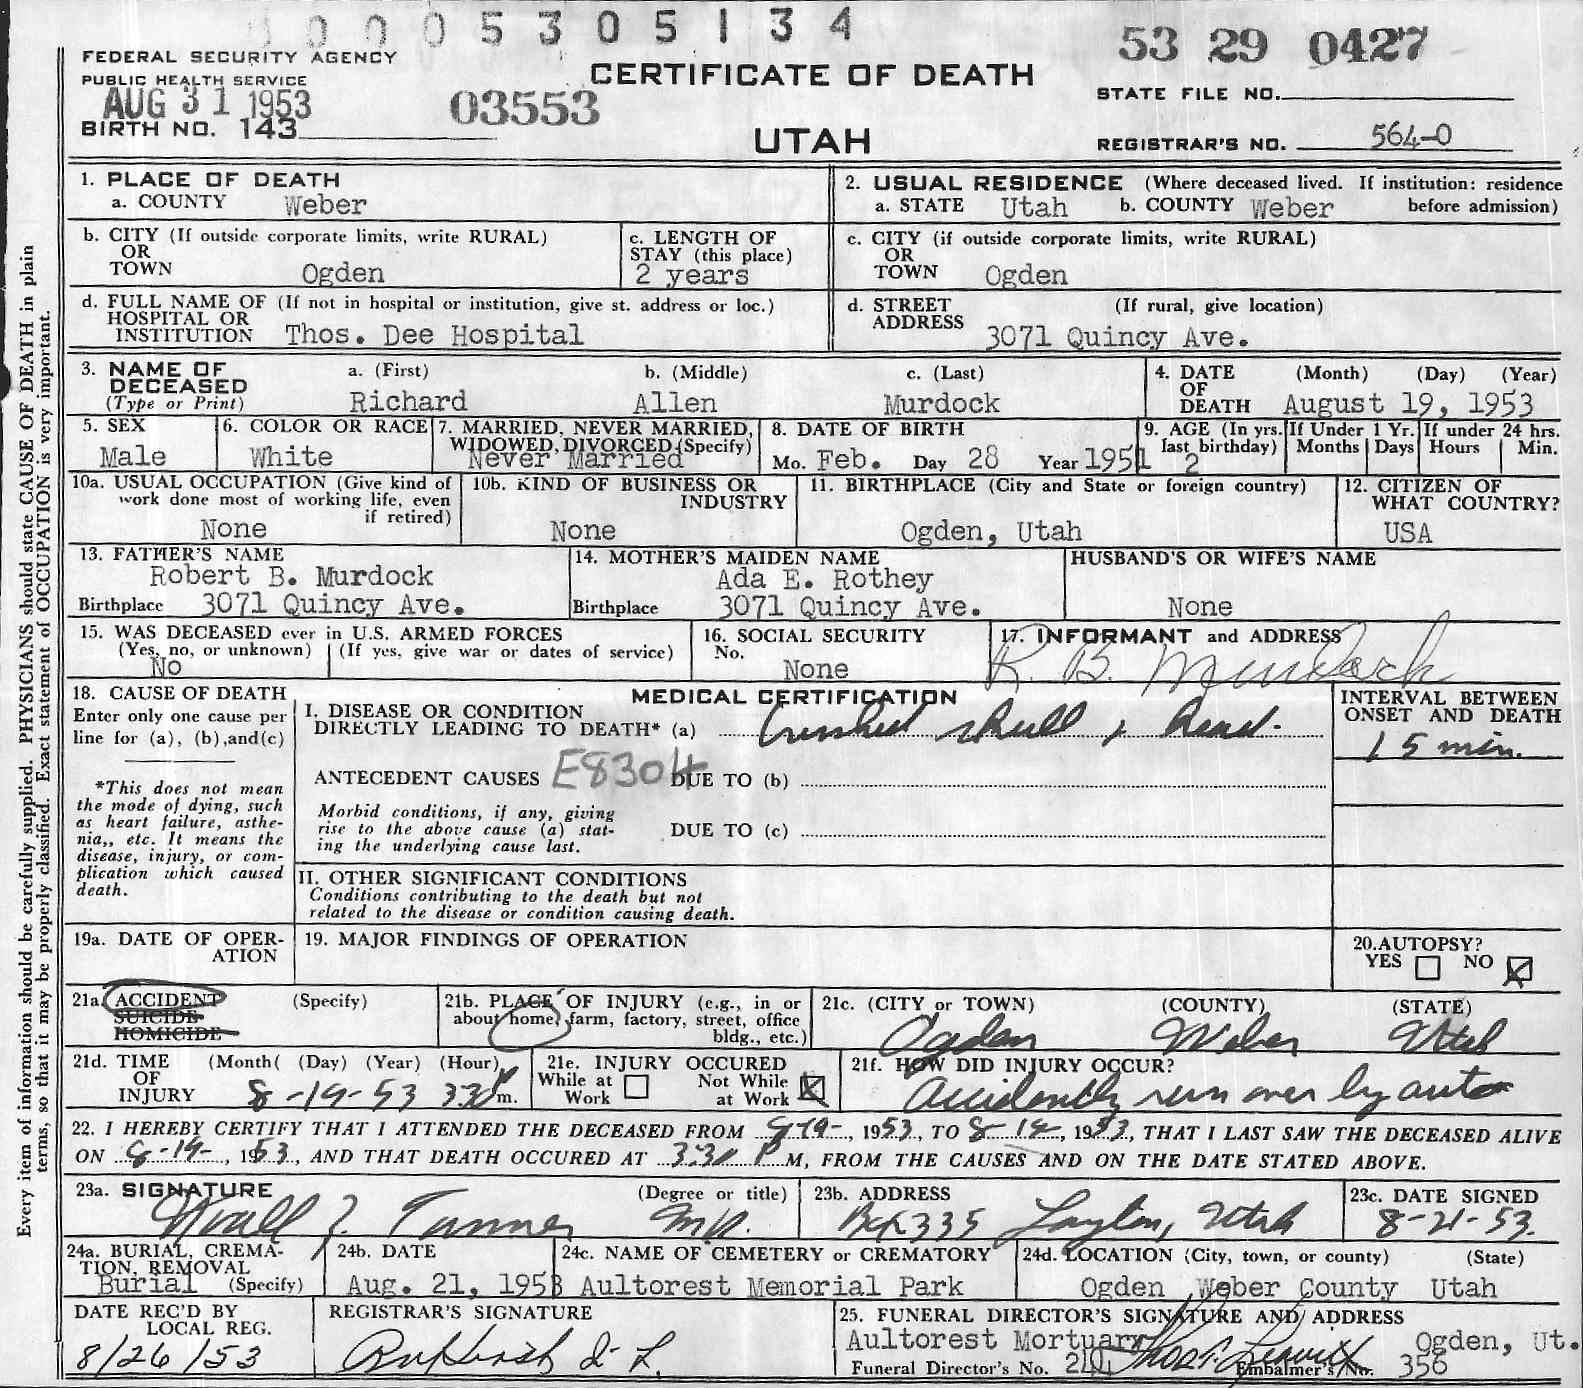 0005305134
53 29 0427
FEDERAL SECURITY AGENCY
PUBLIC HEALTH SERVICE
CERTIFICATE OF DEATH
STATE FILE NO.
AUG 31 1953
03553
BIRTH NO. 143
UTAH
REGISTRAR'S NO. 564-0
1. PLACE OF DEATH
a. COUNTY Weber
2. USUAL RESIDENCE (Where deceased lived. If institution: residence
a. STATE Utah b. COUNTY Weber before admission)
b. CITY (If outside corporate limits, write RURAL)
OR
TOWN Ogden
c. LENGTH OF
STAY (this place)
2 years
c. CITY (if outside corporate limits, write RURAL)
OR
TOWN Ogden
d. FULL NAME OF (If not in hospital or institution, give st. address or loc.)
HOSPITAL OR
INSTITUTION Thos. Dee Hospital
d. STREET (If rural, give location)
ADDRESS 3071 Quincy Ave.
3. NAME OF a. (First) b. (Middle) c. (Last)
DECEASED
(Type or Print) Richard Allen Murdock
4. DATE (Month) (Day) (Year)
OF
DEATH August 19, 1953
5. SEX
Male
6. COLOR OR RACE
White
7. MARRIED, NEVER MARRIED,
WIDOWED, DIVORCED (Specify)
Never Married
8. DATE OF BIRTH
Mo. Feb. Day 28 Year 1951
9. AGE (In yrs.
last birthday)
2
If Under 1 Yr.
Months Days
If under 24 hrs.
Hours Min.
10a. USUAL OCCUPATION (Give kind of
work done most of working life, even
if retired)
None
10b. KIND OF BUSINESS OR
INDUSTRY
None
11. BIRTHPLACE (City and State or foreign country)
Ogden, Utah
12. CITIZEN OF
WHAT COUNTRY?
USA
13. FATHER'S NAME
Robert B. Murdock
Birthplace 3071 Quincy Ave.
14. MOTHER'S MAIDEN NAME
Ada E. Rothey
Birthplace 3071 Quincy Ave.
HUSBAND'S OR WIFE'S NAME
None
15. WAS DECEASED ever in U.S. ARMED FORCES
(Yes, no, or unknown) (If yes, give war or dates of service)
No
16. SOCIAL SECURITY
No.
None
17. INFORMANT and ADDRESS
R. B. Murdock
18. CAUSE OF DEATH
Enter only one cause per
line for (a), (b),and(c)
*This does not mean
the mode of dying, such
as heart failure, asthe-
nia,, etc. It means the
disease, injury, or com-
plication which caused
death.
MEDICAL CERTIFICATION
I. DISEASE OR CONDITION
DIRECTLY LEADING TO DEATH* (a) Crushed skull & head.
ANTECEDENT CAUSES E8304 DUE TO (b)
Morbid conditions, if any, giving
rise to the above cause (a) stat-
ing the underlying cause last.
DUE TO (c)
INTERVAL BETWEEN
ONSET AND DEATH
15 min.
II. OTHER SIGNIFICANT CONDITIONS
Conditions contributing to the death but not
related to the disease or condition causing death.
19a. DATE OF OPER-
ATION
19. MAJOR FINDINGS OF OPERATION
20.AUTOPSY?
YES NO
21a. ACCIDENT (Specify)
SUICIDE
HOMICIDE
21b. PLACE OF INJURY (e.g., in or
about home, farm, factory, street, office
bldg., etc.)
21c. (CITY or TOWN) (COUNTY) (STATE)
Ogden Weber Utah
21d. TIME (Month( (Day) (Year) (Hour)
OF
INJURY 8-19-53 330 P m.
21e. INJURY OCCURED
While at Not While
Work at Work
21f. HOW DID INJURY OCCUR?
Accidently run over by auto
22. I HEREBY CERTIFY THAT I ATTENDED THE DECEASED FROM 8-19-, 1953, TO 8-19-, 1953, THAT I LAST SAW THE DECEASED ALIVE
ON 8-19-, 1953, AND THAT DEATH OCCURED AT 3:30 P M, FROM THE CAUSES AND ON THE DATE STATED ABOVE.
23a. SIGNATURE (Degree or title)
Noall Z. Tanner M.D.
23b. ADDRESS
Box 335 Layton, Utah
23c. DATE SIGNED
8-21-53.
24a. BURIAL, CREMA-
TION, REMOVAL
Burial (Specify)
24b. DATE
Aug. 21, 1953
24c. NAME OF CEMETERY or CREMATORY
Aultorest Memorial Park
24d. LOCATION (City, town, or county) (State)
Ogden Weber County Utah
DATE REC'D BY
LOCAL REG.
8/26/53
REGISTRAR'S SIGNATURE
25. FUNERAL DIRECTOR'S SIGNATURE AND ADDRESS
Aultorest Mortuary Ogden, Ut.
Funeral Director's No. Embalmer's No. 356
Every item of information should be carefully supplied. PHYSICIANS should state CAUSE OF DEATH in plain
terms, so that it may be properly classified. Exact statement of OCCUPATION is very important.